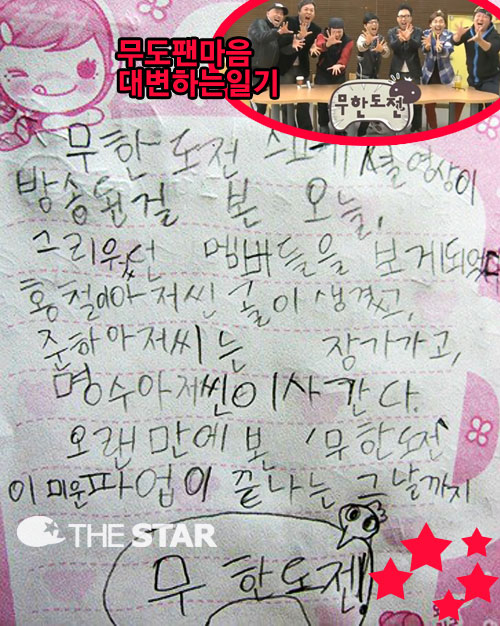 무도팬마음
대변하는일기
무한도전
무한도전 스페셜영상이
방송된걸 본 오늘,
그리웠던 멤버들을 보게되었다
홍철아저씬 골이 생겼고,
준하아저씨는 장가가고,
명수아저씬 이사간다.
오랜만에 본 '무한도전'
이 미운파업이 끝나는 그날까지
THE STAR
무한도전!